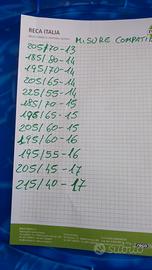 RECA ITALIA
MISURE COMPATIB
205/70-13
185/80-14
195/70-14
205/65-14
225/55-14
185/70-15
195/65-15
205/60-15
195/60-16
195/55-16
205/45-17
215/40-17
subito